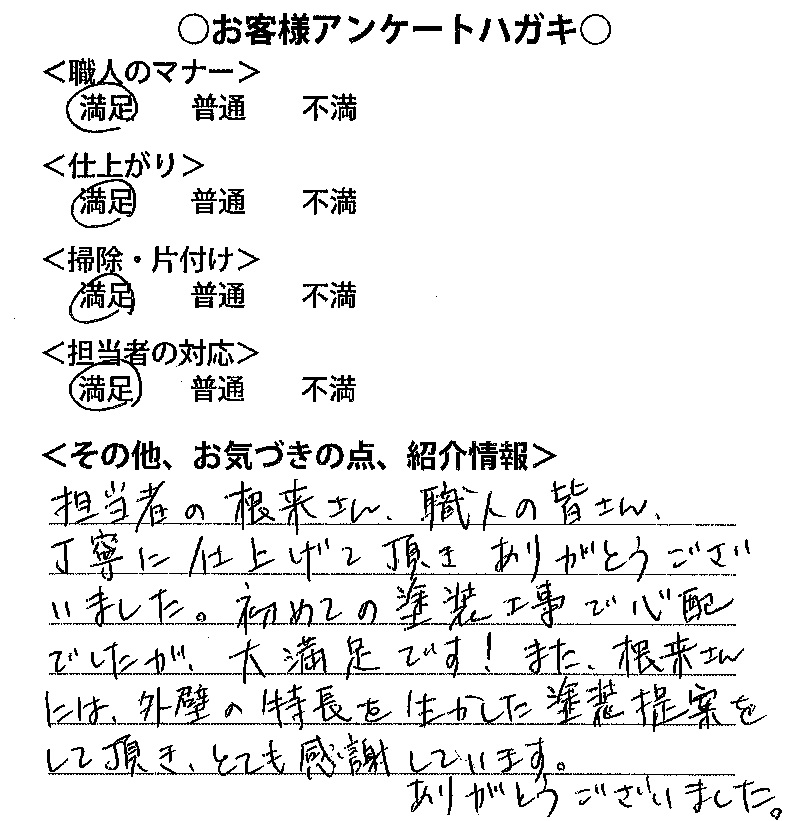 ○お客様アンケートハガキ○
＜職人のマナー＞
満足 普通 不満
＜仕上がり＞
満足 普通 不満
＜掃除・片付け＞
満足 普通 不満
＜担当者の対応＞
満足 普通 不満
＜その他、お気づきの点、紹介情報＞
担当者の根来さん、職人の皆さん、
丁寧に仕上げて頂きありがとうござい
いました。初めての塗装工事で心配
でしたが、大満足です！また、根来さん
には、外壁の特長を生かした塗装提案を
して頂き、とても感謝しています。
ありがとうございました。